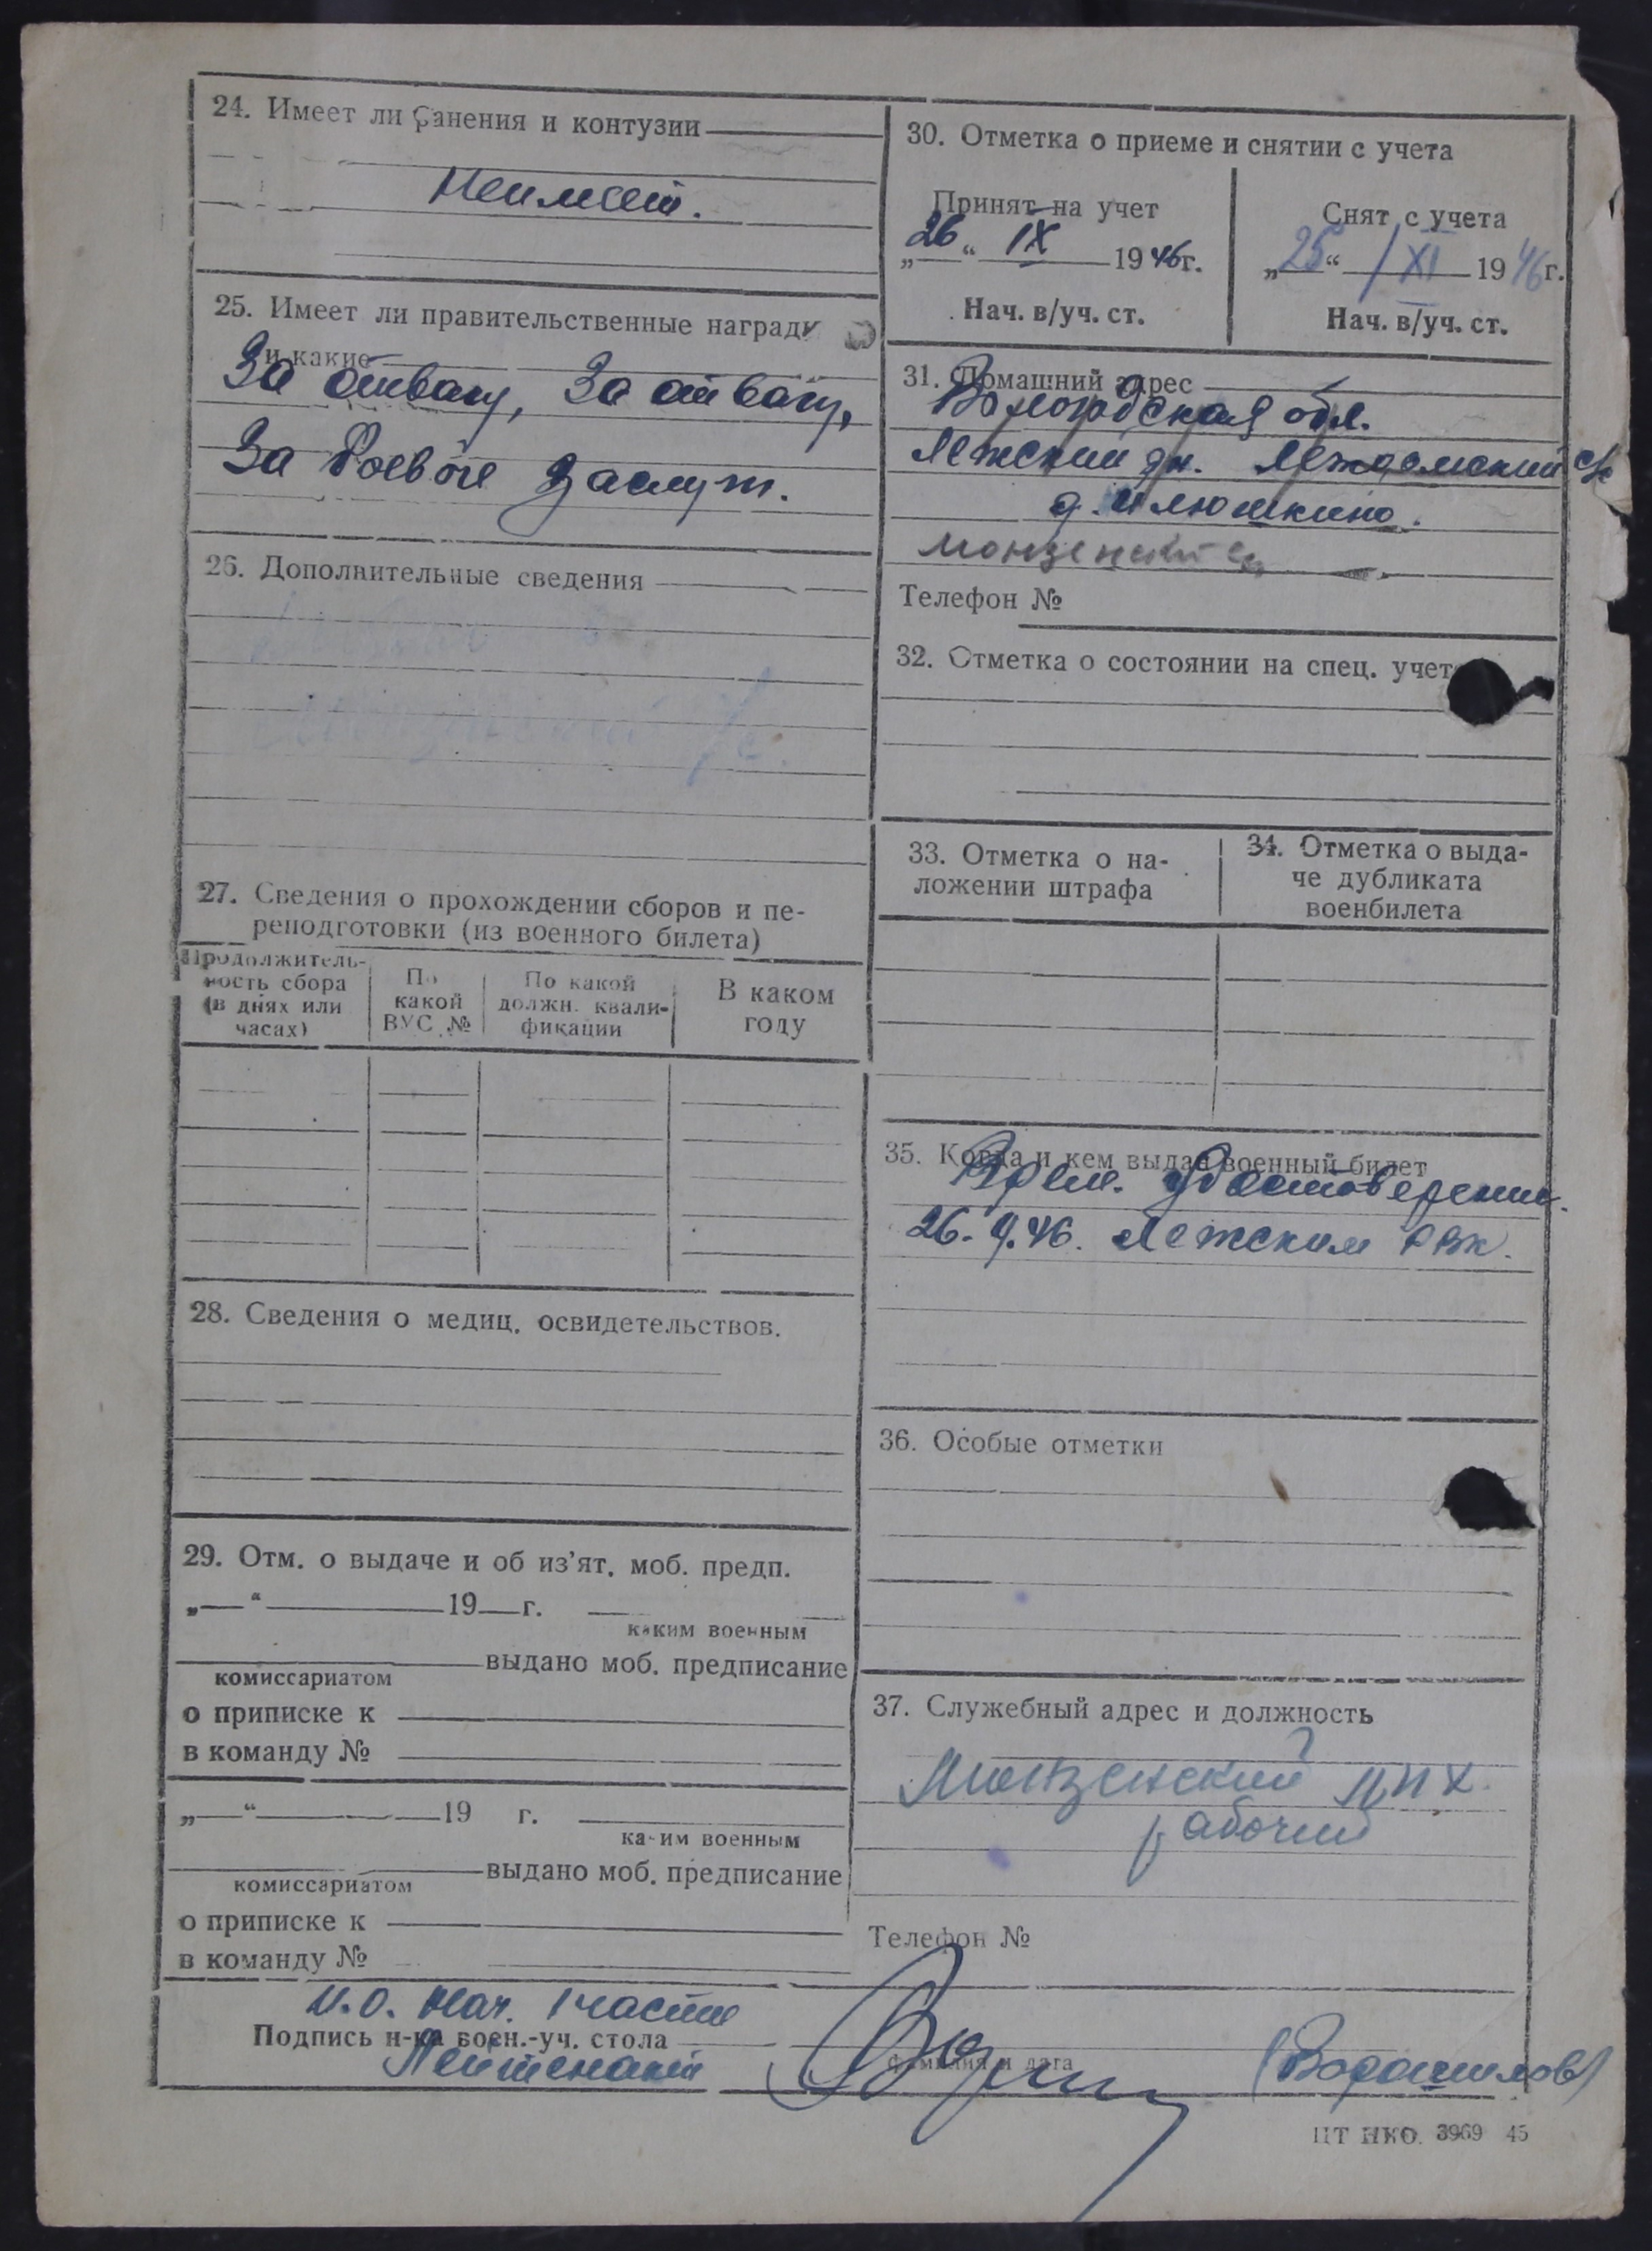 24. Имеет ли ранения и контузии
Неимеет.
25. Имеет ли правительственные награды
и какие
За отвагу, За отвагу,
За боевые заслуг.
26. Дополнительные сведения
27. Сведения о прохождении сборов и пе-
реподготовки (из военного билета)
Продолжитель-
ность сбора
(в днях или
часах)
По
какой
ВУС №
По какой
должн. квали-
фикации
В каком
году
28. Сведения о медиц. освидетельствов.
29. Отм. о выдаче и об из’ят. моб. предп.
„ “ 19 г.
каким военным
выдано моб. предписание
комиссариатом
о приписке к
в команду №
„ “ 19 г.
каким военным
выдано моб. предписание
комиссариатом
о приписке к
в команду №
30. Отметка о приеме и снятии с учета
Принят на учет
„26“ IX 1946г.
Нач. в/уч. ст.
Снят с учета
„25“ XI 1946г.
Нач. в/уч. ст.
31. Домашний адрес
Вологодская обл.
Лежский рн. Леждомский с/с
д. Илюшкино.
Монзенский
Телефон №
32. Отметка о состоянии на спец. учете
33. Отметка о на-
ложении штрафа
34. Отметка о выда-
че дубликата
военбилета
35. Когда и кем выдан военный билет
Врем. Удостоверение.
26.9.46. Лежским РВК.
36. Особые отметки
37. Служебный адрес и должность
Монзенский
рабочий
Телефон №
И.О. Нач. 1 части
Подпись н-ка воен.-уч. стола
Лейтенант
фамилия и дата
(Ворошилов)
ЦТ НКО. 3969 45